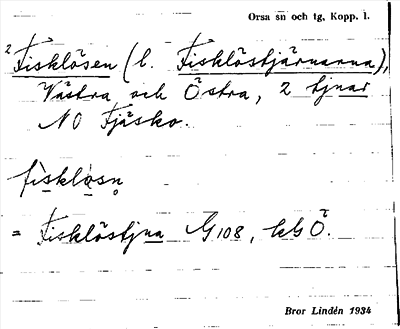 Orsa sn och tg, Kopp. l.
2 Fisklösen (l. Fisklöstjärnarna),
Västra och Östra, 2 tjnar
NO Fjäsko.
fisklosn
= Fisklöstjna G108, kbÖ.
Bror Lindén 1934